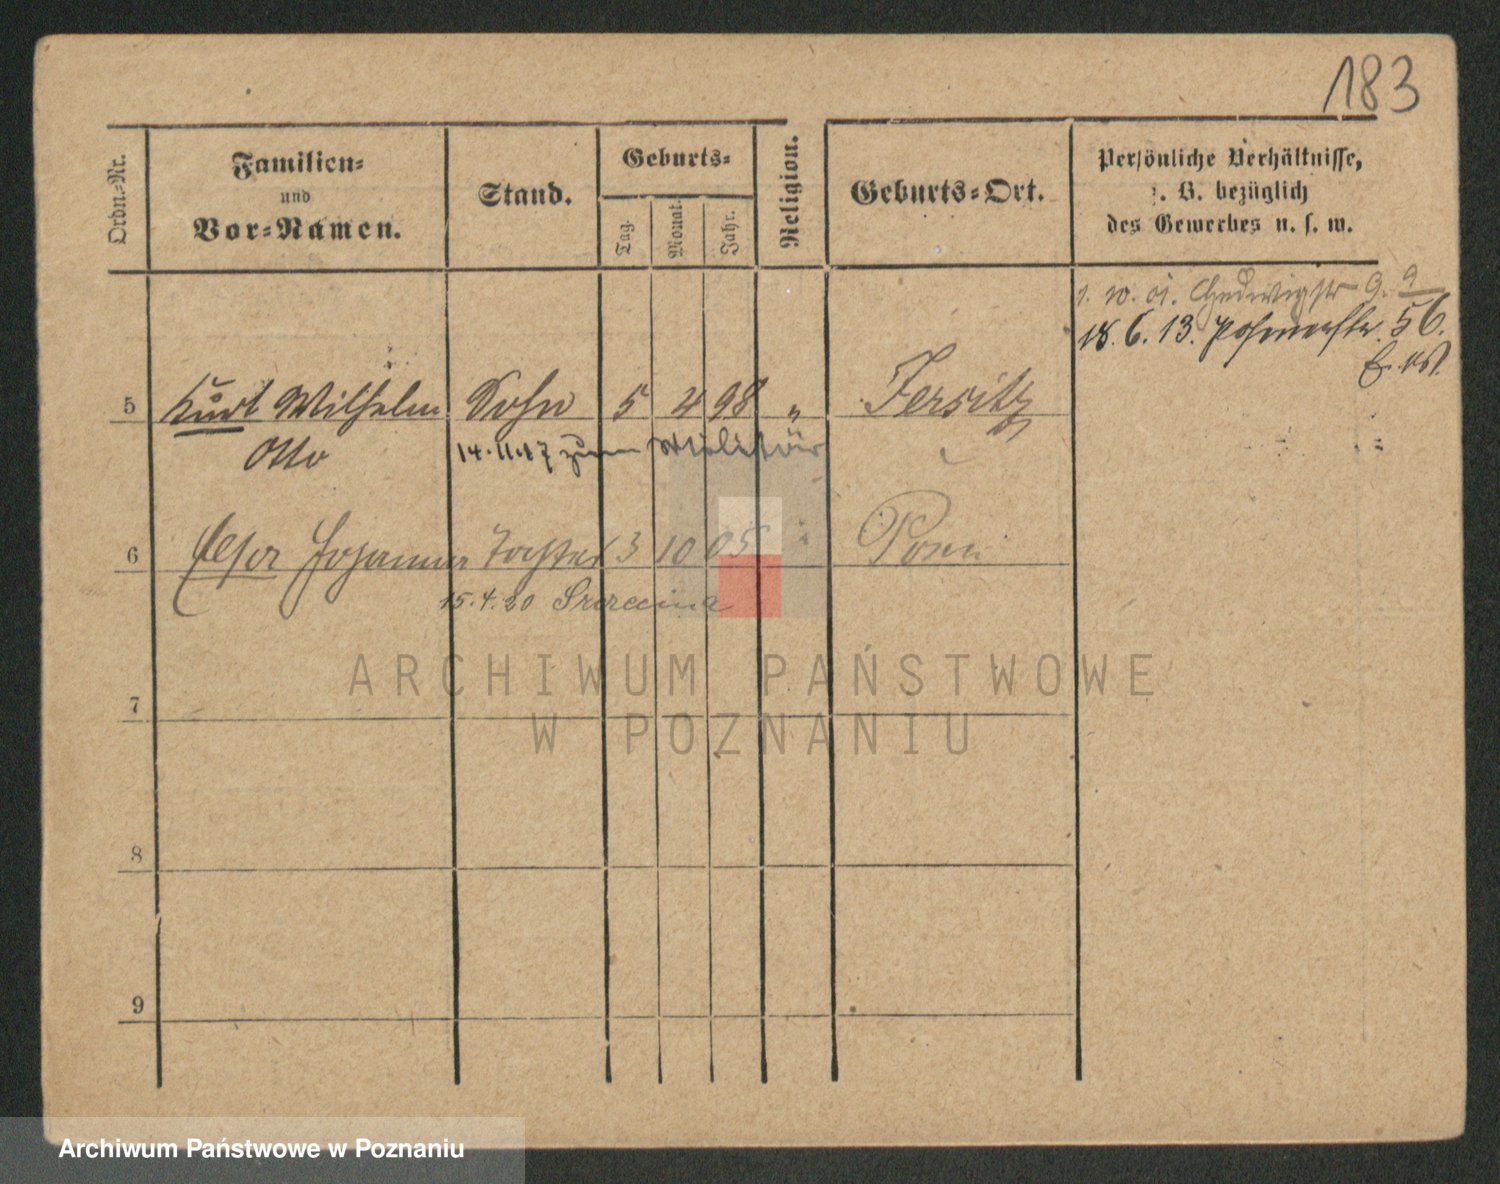 183
Ordn.-Nr.
Familien-
und
Vor-Namen.
Stand.
Geburts-
Tag.
Monat.
Jahr.
Religion.
Geburts-Ort.
Persönliche Verhältnisse,
z. B. bezüglich
des Gewerbes u. s. w.
1. 10. 01. Hedwigstr 9.
18. 6. 13. Posenerstr. 56.
5 Kurt Wilhelm Sohn 5 4 98 " Jersitz
Otto 14.11.17 zum Militär
6 Johanna Tochter 3 10 05 " Posen
15.4.20
7
8
9
ARCHIWUM PAŃSTWOWE
W POZNANIU
Archiwum Państwowe w Poznaniu